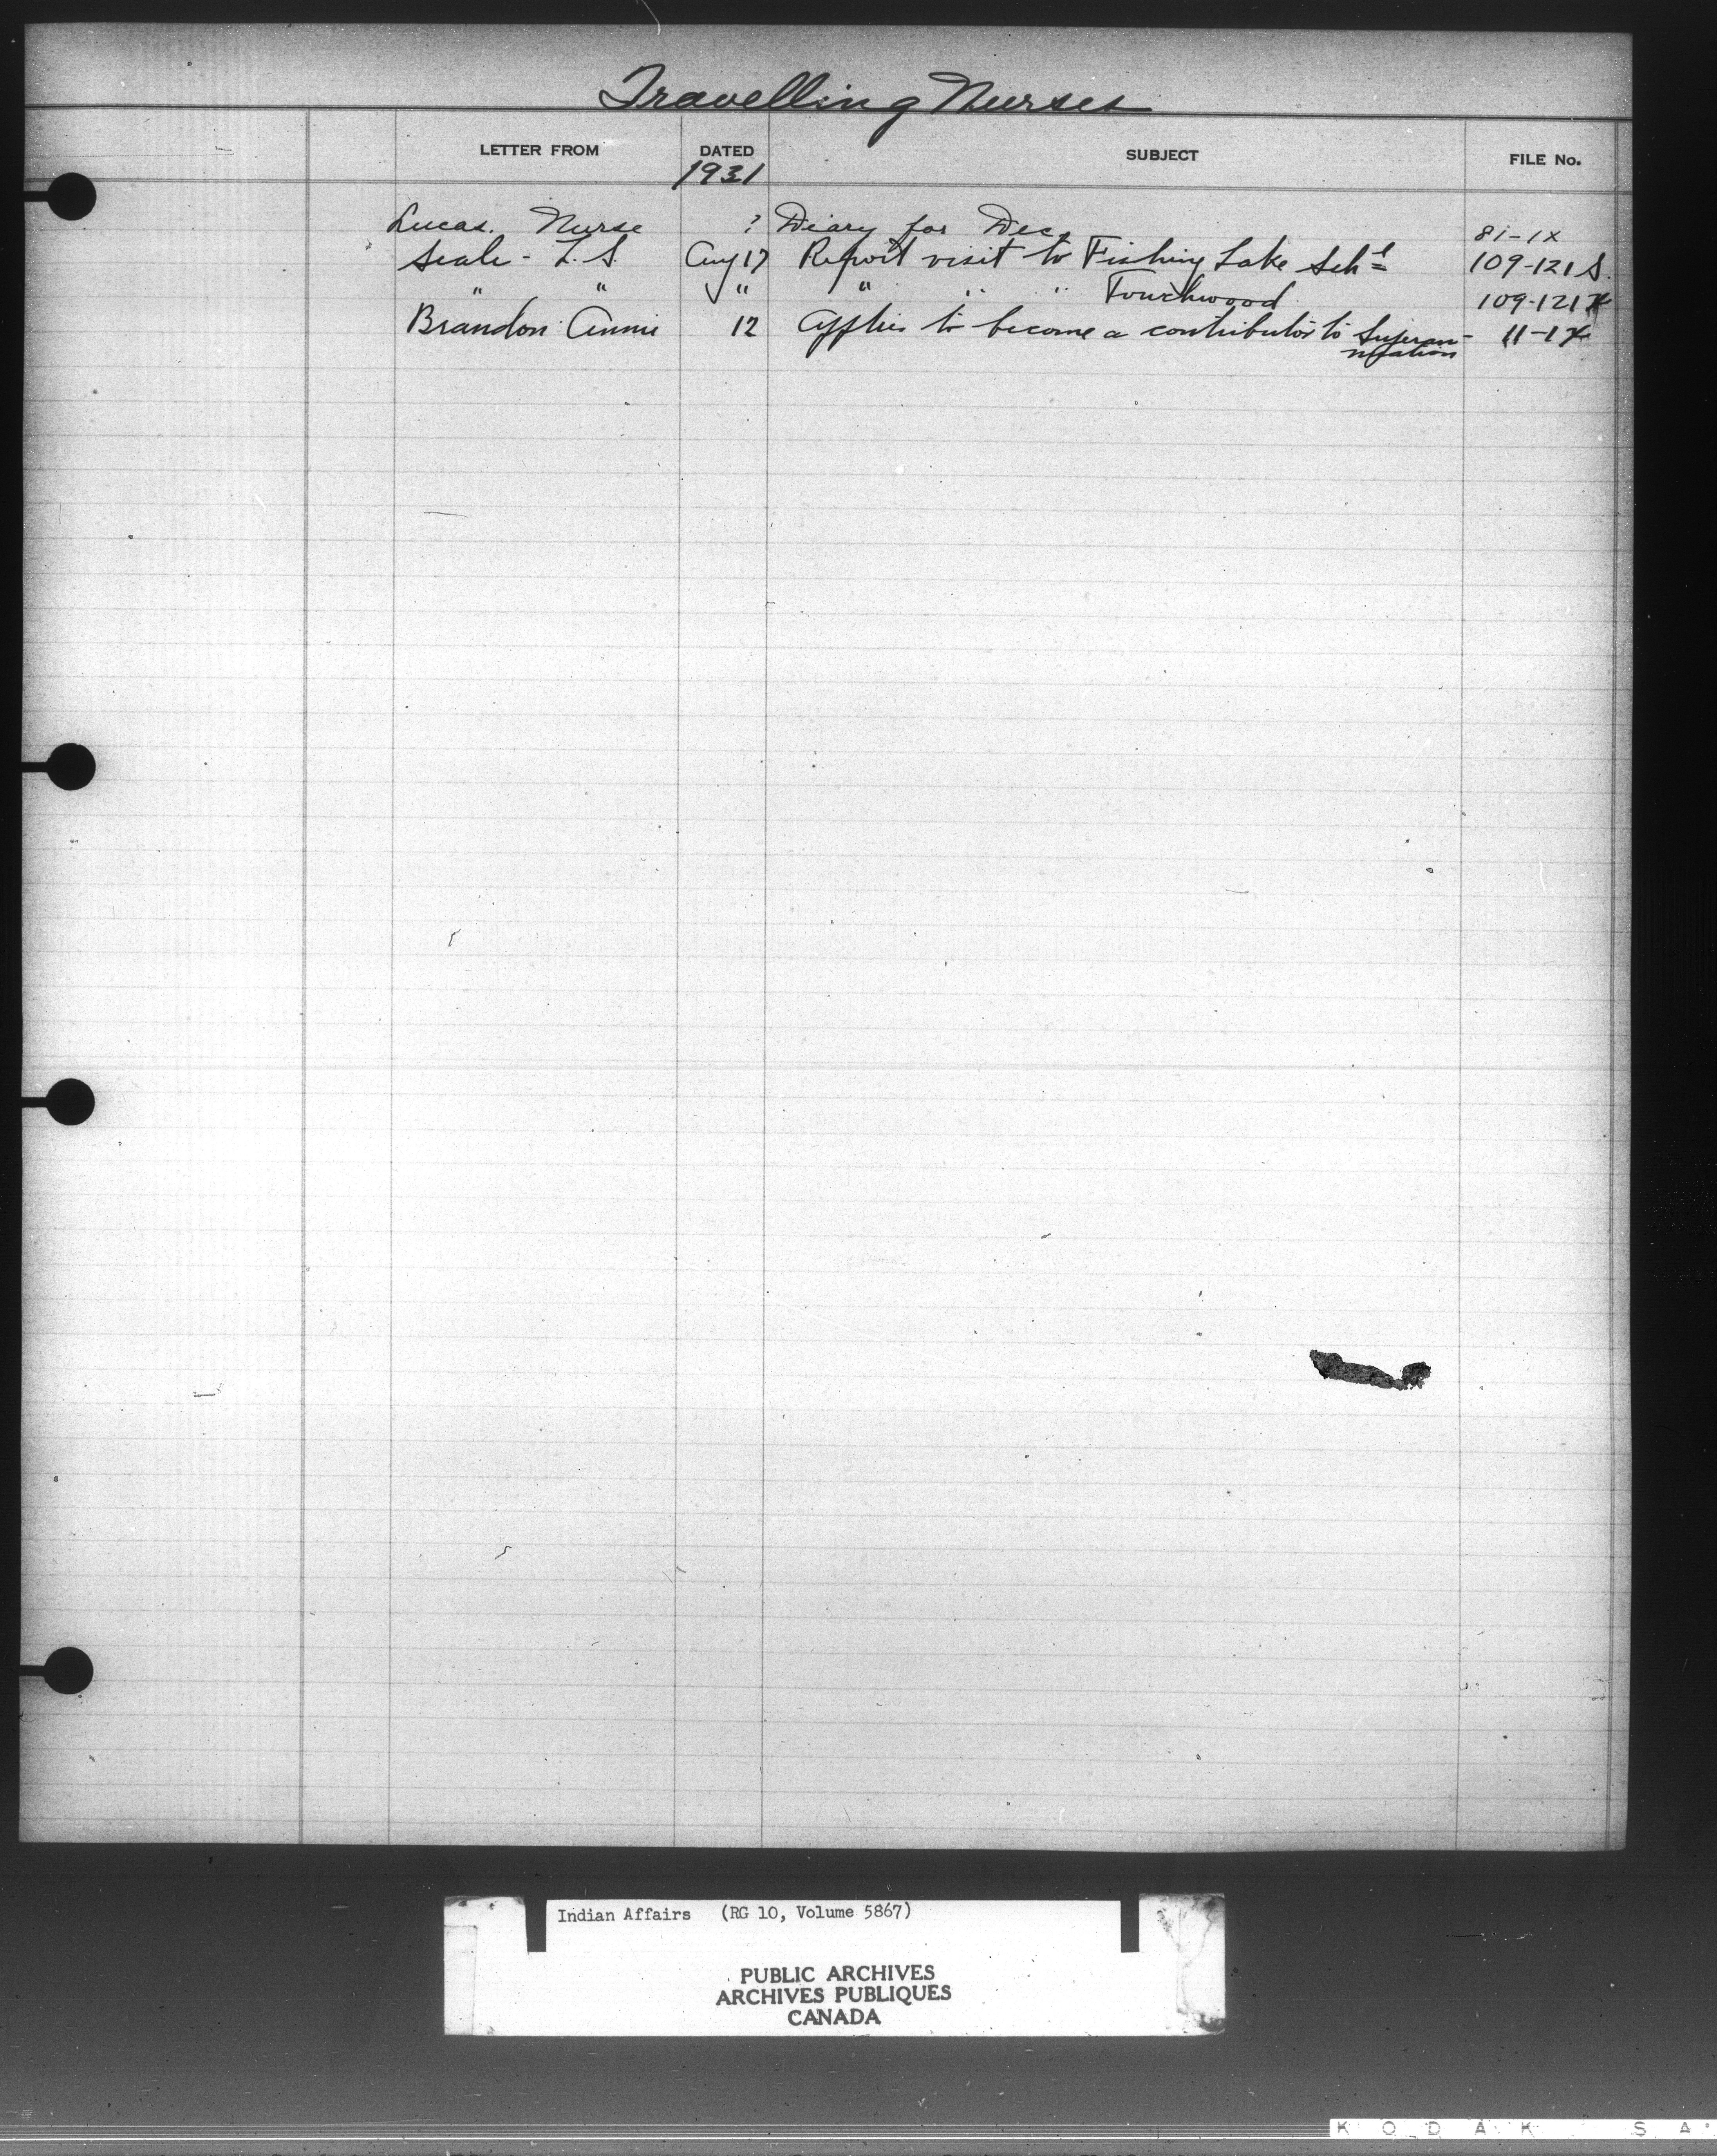 Travelling Nurses
LETTER FROM DATED SUBJECT FILE No.
1931
Lucas. Nurse ? Diary for Dec. 81-1X
Seale - L. S. Aug 17 Report visit to Fishing Lake Schl 109-121 S.
" " " " " " Touchwood 109-121
Brandon Annie 12 Applies to become a contributor to Superan- 11-1
nuation
Indian Affairs (RG 10, Volume 5867)
PUBLIC ARCHIVES
ARCHIVES PUBLIQUES
CANADA
KODAK SA